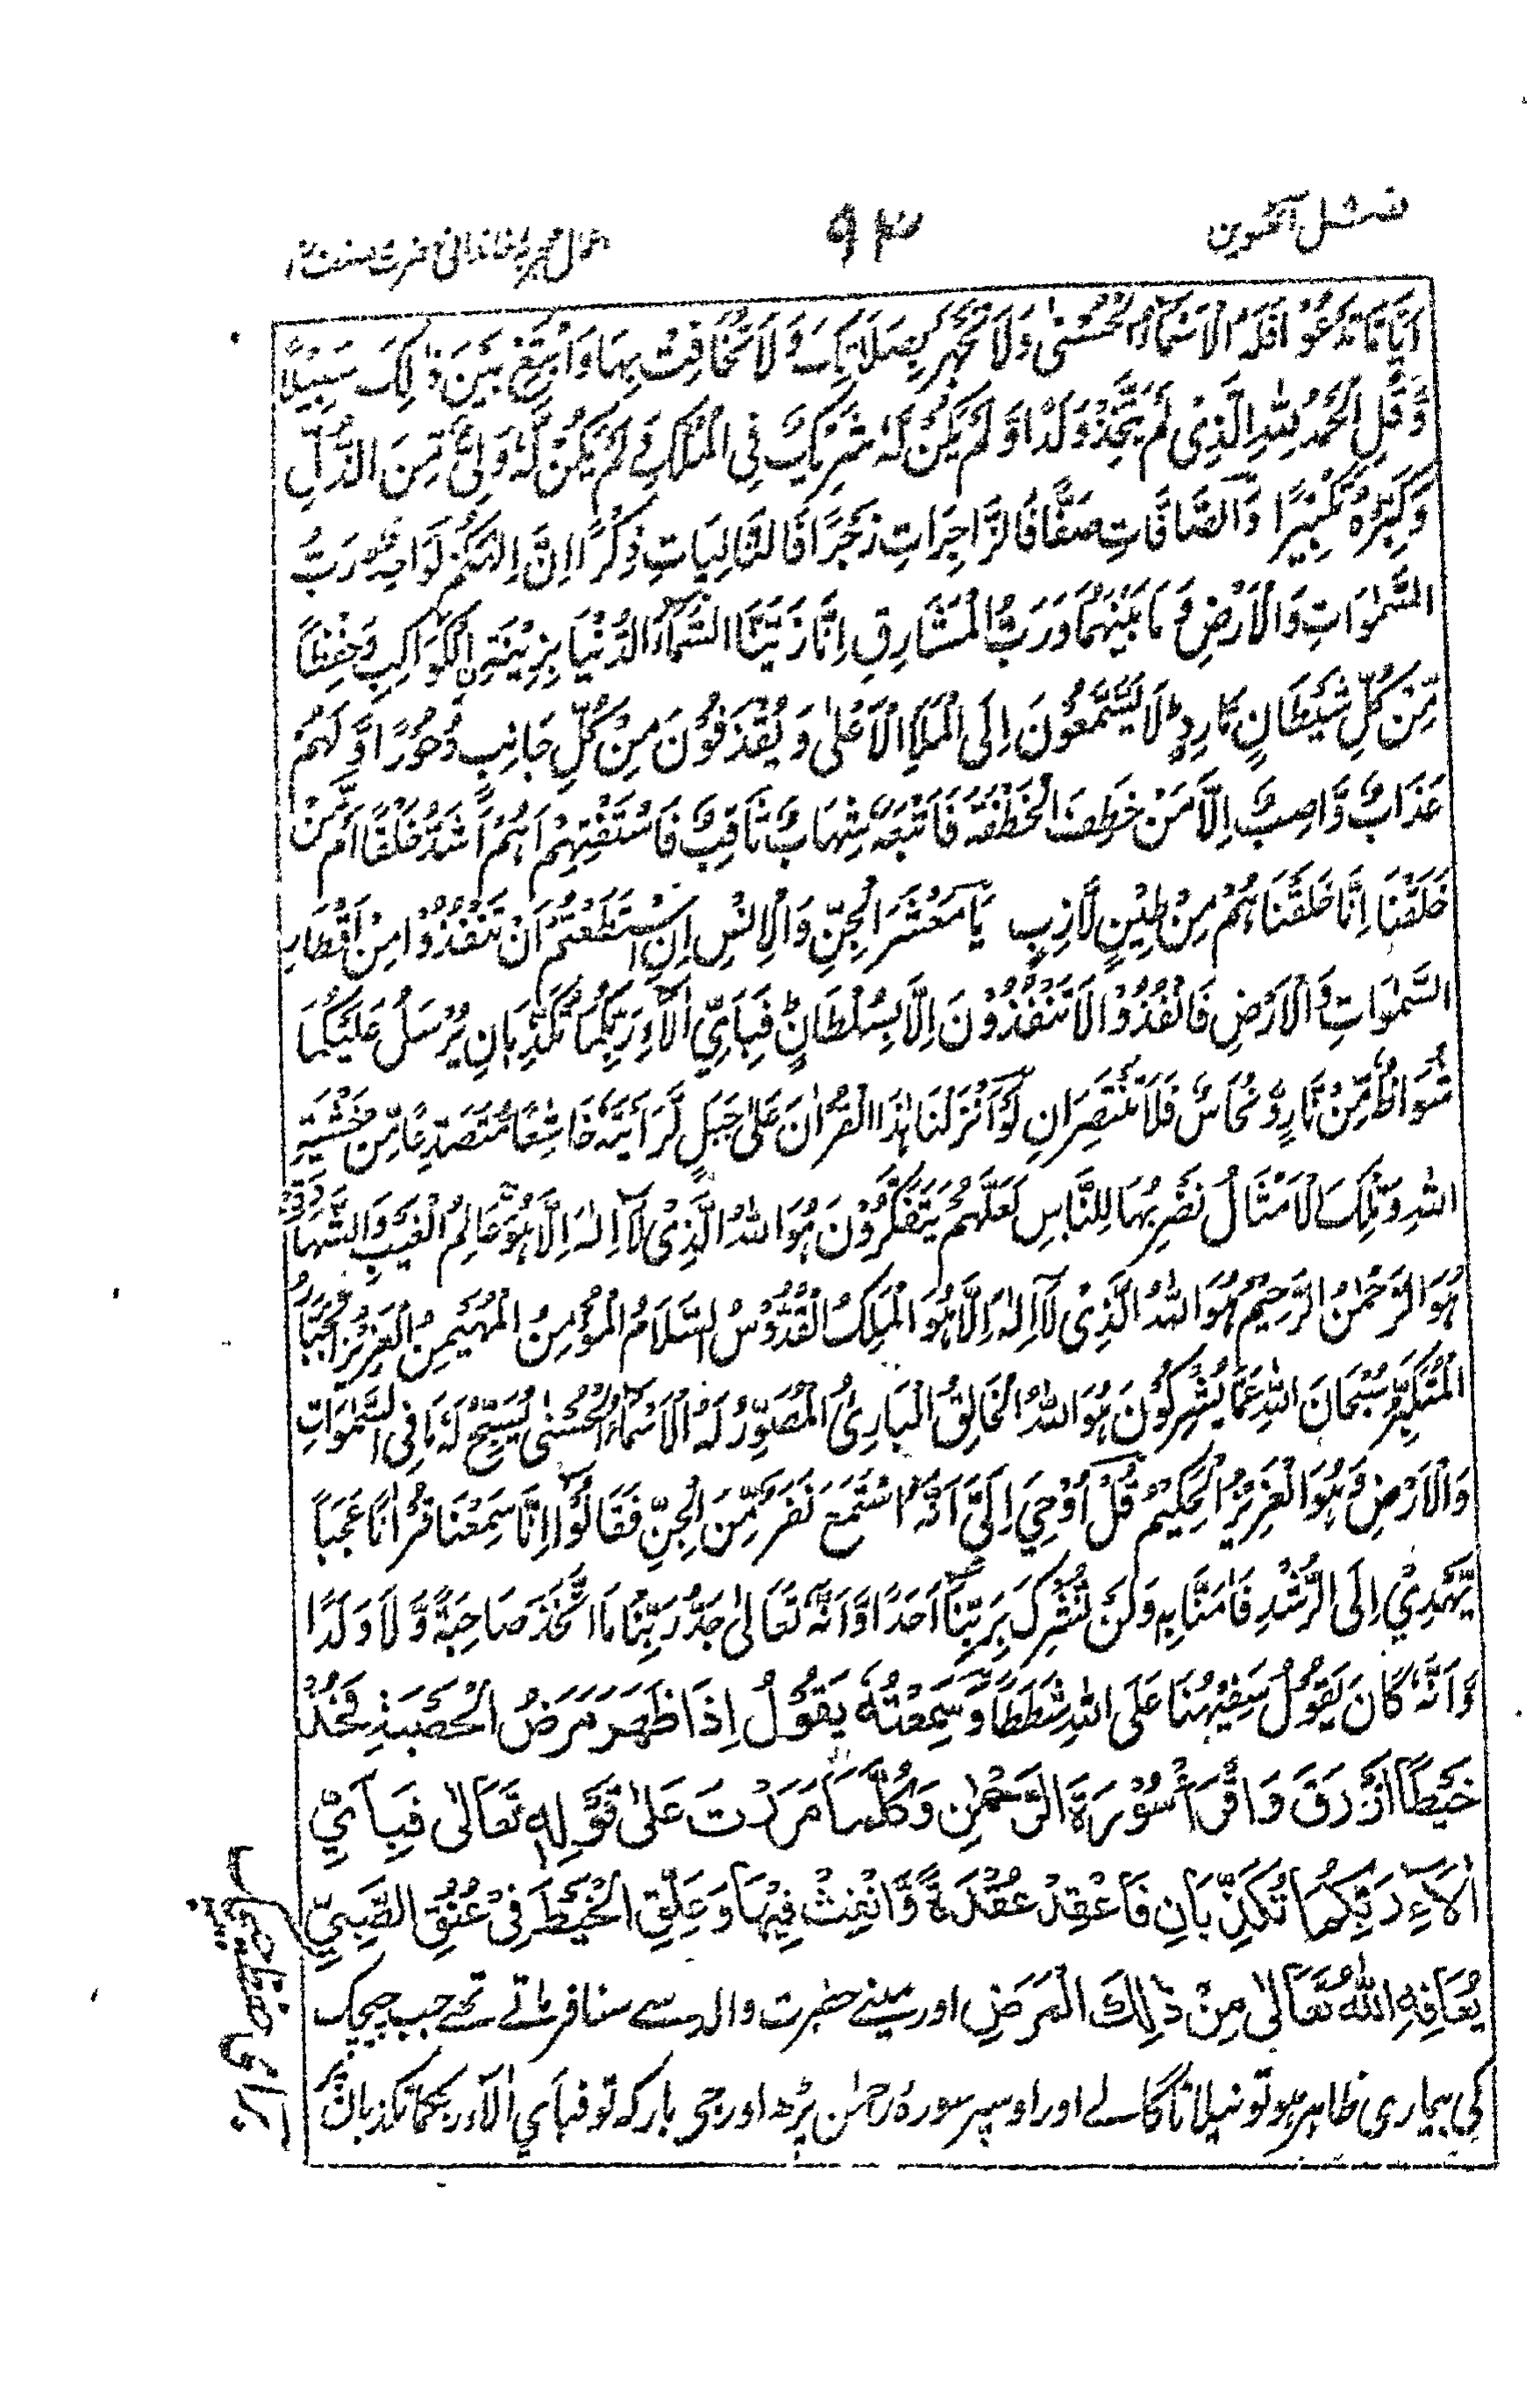 فصل آٹھوین
٩٣
اعمال مجربہ خاندانی حضرت مصنف رح
اَيًّا مَّا تَدْعُوْا فَلَهُ الْاَسْمَآءُ الْحُسْنٰى وَلَا تَجْهَرْ بِصَلَاتِكَ وَلَا تُخَافِتْ بِهَا وَابْتَغِ بَيْنَ ذٰلِكَ سَبِيْلًا
وَّقُلِ الْحَمْدُ لِلّٰهِ الَّذِىْ لَمْ يَتَّخِذْ وَلَدًا وَّلَمْ يَكُنْ لَّهٗ شَرِيْكٌ فِى الْمُلْكِ وَلَمْ يَكُنْ لَّهٗ وَلِىٌّ مِّنَ الذُّلِّ
وَكَبِّرْهُ تَكْبِيْرًا وَالصَّافَّاتِ صَفًّا فَالزَّاجِرَاتِ زَجْرًا فَالتَّالِيَاتِ ذِكْرًا اِنَّ اِلٰهَكُمْ لَوَاحِدٌ رَبُّ
السَّمٰوَاتِ وَالْاَرْضِ وَمَا بَيْنَهُمَا وَرَبُّ الْمَشَارِقِ اِنَّا زَيَّنَّا السَّمَآءَ الدُّنْيَا بِزِيْنَةِ نِ الْكَوَاكِبِ وَحِفْظًا
مِّنْ كُلِّ شَيْطَانٍ مَّارِدٍ لَا يَسَّمَّعُوْنَ اِلَى الْمَلَاِ الْاَعْلٰى وَيُقْذَفُوْنَ مِنْ كُلِّ جَانِبٍ دُحُوْرًا وَّلَهُمْ
عَذَابٌ وَّاصِبٌ اِلَّا مَنْ خَطِفَ الْخَطْفَةَ فَاَتْبَعَهٗ شِهَابٌ ثَاقِبٌ فَاسْتَفْتِهِمْ اَهُمْ اَشَدُّ خَلْقًا اَمْ مَّنْ
خَلَقْنَا اِنَّا خَلَقْنَاهُمْ مِنْ طِيْنٍ لَّازِبٍ يَا مَعْشَرَ الْجِنِّ وَالْاِنْسِ اِنِ اسْتَطَعْتُمْ اَنْ تَنْفُذُوْا مِنْ اَقْطَارِ
السَّمٰوَاتِ وَالْاَرْضِ فَانْفُذُوْا لَا تَنْفُذُوْنَ اِلَّا بِسُلْطَانٍ فَبِاَيِّ اٰلَآءِ رَبِّكُمَا تُكَذِّبَانِ يُرْسَلُ عَلَيْكُمَا
شُوَاظٌ مِّنْ نَّارٍ وَّنُحَاسٌ فَلَا تَنْتَصِرَانِ لَوْ اَنْزَلْنَا هٰذَا الْقُرْاٰنَ عَلٰى جَبَلٍ لَّرَاَيْتَهٗ خَاشِعًا مُّتَصَدِّعًا مِّنْ خَشْيَةِ
اللّٰهِ وَتِلْكَ الْاَمْثَالُ نَضْرِبُهَا لِلنَّاسِ لَعَلَّهُمْ يَتَفَكَّرُوْنَ هُوَ اللّٰهُ الَّذِىْ لَآ اِلٰهَ اِلَّا هُوَ عَالِمُ الْغَيْبِ وَالشَّهَادَةِ
هُوَ الرَّحْمٰنُ الرَّحِيْمُ هُوَ اللّٰهُ الَّذِىْ لَآ اِلٰهَ اِلَّا هُوَ الْمَلِكُ الْقُدُّوْسُ السَّلَامُ الْمُؤْمِنُ الْمُهَيْمِنُ الْعَزِيْزُ الْجَبَّارُ
الْمُتَكَبِّرُ سُبْحَانَ اللّٰهِ عَمَّا يُشْرِكُوْنَ هُوَ اللّٰهُ الْخَالِقُ الْبَارِئُ الْمُصَوِّرُ لَهُ الْاَسْمَآءُ الْحُسْنٰى يُسَبِّحُ لَهٗ مَا فِى السَّمٰوَاتِ
وَالْاَرْضِ وَهُوَ الْعَزِيْزُ الْحَكِيْمُ قُلْ اُوْحِيَ اِلَيَّ اَنَّهُ اسْتَمَعَ نَفَرٌ مِّنَ الْجِنِّ فَقَالُوْا اِنَّا سَمِعْنَا قُرْاٰنًا عَجَبًا
يَّهْدِيْ اِلَى الرُّشْدِ فَاٰمَنَّا بِهٖ وَلَنْ نُّشْرِكَ بِرَبِّنَآ اَحَدًا وَّاَنَّهٗ تَعَالٰى جَدُّ رَبِّنَا مَا اتَّخَذَ صَاحِبَةً وَّلَا وَلَدًا
وَّاَنَّهٗ كَانَ يَقُوْلُ سَفِيْهُنَا عَلَى اللّٰهِ شَطَطًا وَسَمِعْتُهٗ يَقُوْلُ اِذَا ظَهَرَ مَرَضُ الْحَصَبَةِ فَخُذْ
خَيْطًا اَزْرَقَ وَاقْرَأْ سُوْرَةَ الرَّحْمٰنِ وَكُلَّمَا مَرَرْتَ عَلٰى قَوْلِهٖ تَعَالٰى فَبِاَيِّ
اٰلَآءِ رَبِّكُمَا تُكَذِّبَانِ فَاعْقِدْ عُقْدَةً وَّانْفِثْ فِيْهَا وَعَلِّقِ الْخَيْطَ فِىْ عُنُقِ الصَّبِيِّ
يُعَافِهِ اللّٰهُ تَعَالٰى مِنْ ذٰلِكَ الْمَرَضِ اور مینے حضرت والد سے سنا فرماتے تھے جب چیچک
کی بیماری ظاہر ہو تو نیلا تاگا لے اور اوسپر سورۂ رحمٰن پڑھ اور جب بار کہ تو فبای اٰلآء ربکما تکذبان پر
برای حفظ